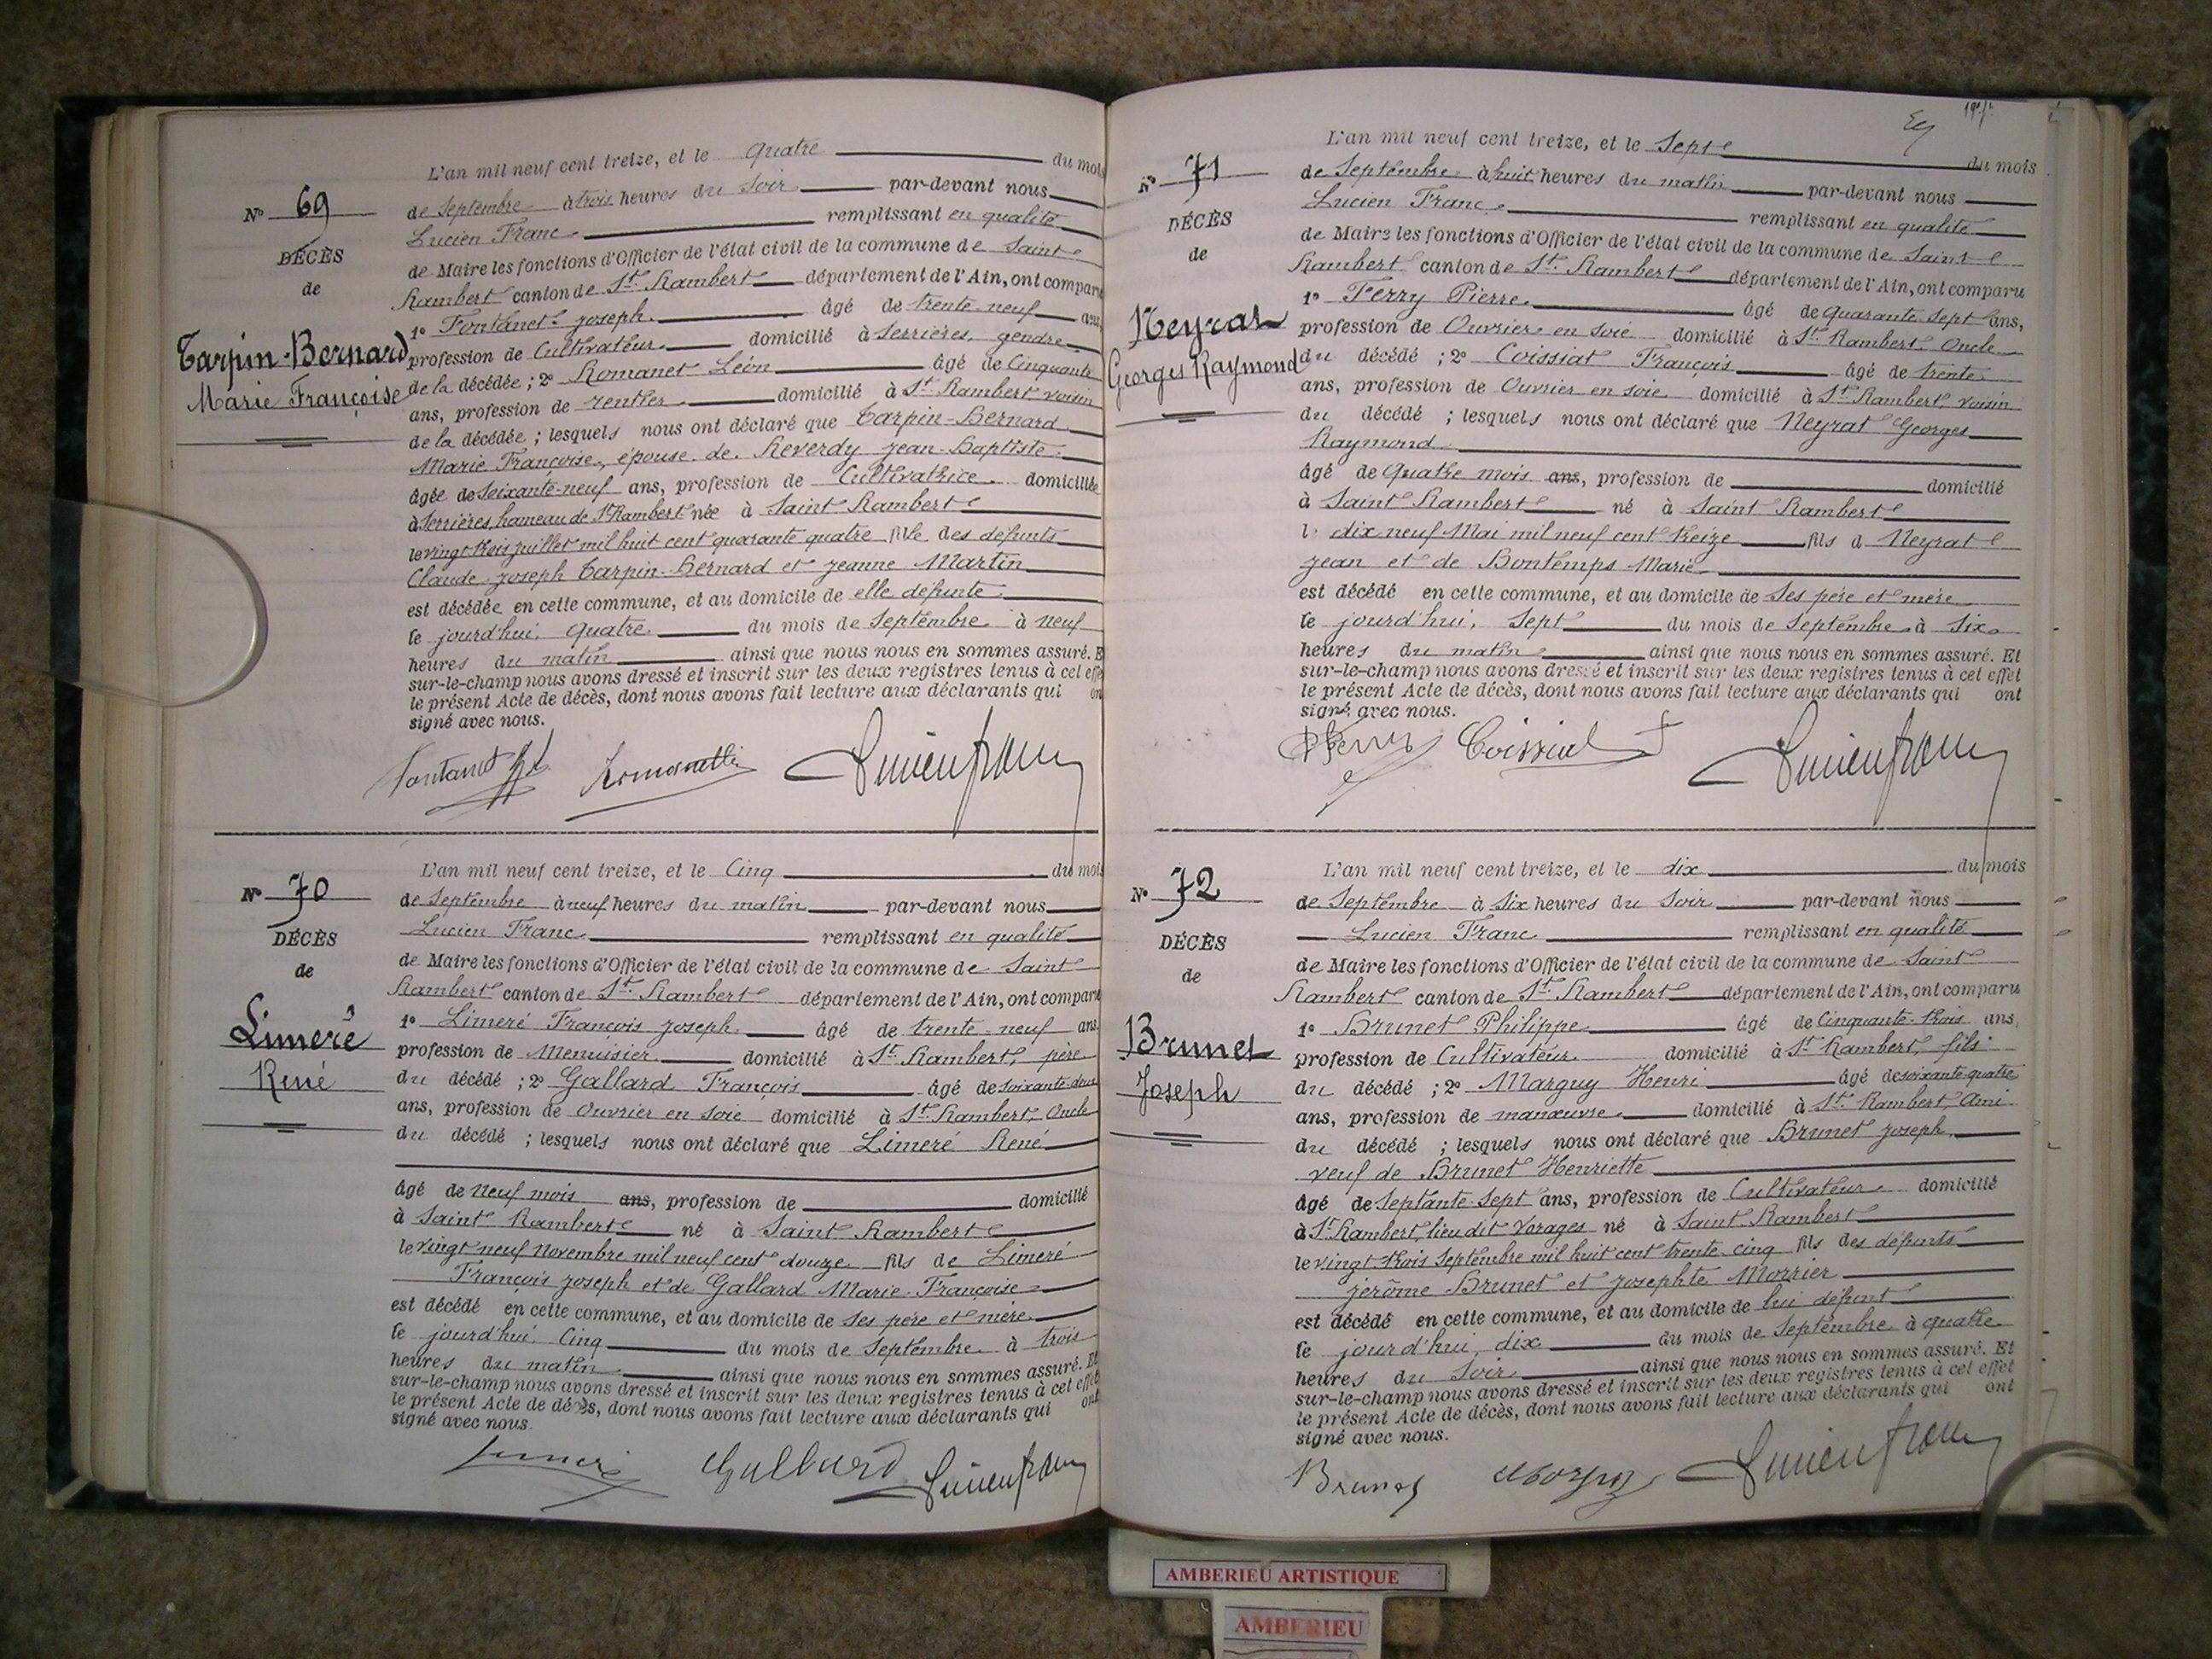 Nº 69
DÉCÈS
de
Tarpin-Bernard
Marie Françoise
L'an mil neuf cent treize, et le quatre du mois
de Septembre à trois heures du Soir par-devant nous
Lucien Franc remplissant en qualité
de Maire les fonctions d'Officier de l'état civil de la commune de Saint
Rambert canton de St. Rambert département de l'Ain, ont comparu
1º Fontanet Joseph âgé de trente-neuf ans
profession de Cultivateur domicilié à Serrières, gendre
de la décédée ; 2º Romanet Léon âgé de Cinquante
ans, profession de rentier domicilié à St Rambert voisin
de la décédée ; lesquels nous ont déclaré que Tarpin-Bernard
Marie Françoise, épouse de Reverdy Jean-Baptiste
âgée de Soixante-neuf ans, profession de Cultivatrice domiciliée
à Serrières, hameau de St Rambert née à Saint Rambert
le vingt trois juillet mil huit cent quarante quatre fille des défunts
Claude Joseph Tarpin-Bernard et Jeanne Martin
est décédée en cette commune, et au domicile de elle défunte
le jourd'hui, quatre du mois de Septembre à neuf
heures du matin ainsi que nous nous en sommes assuré. E
sur-le-champ nous avons dressé et inscrit sur les deux registres tenus à cet effe
le présent Acte de décès, dont nous avons fait lecture aux déclarants qui on
signé avec nous.
Fontanet Romanet Lucien Franc
Nº 70
DÉCÈS
de
Limeré
René
L'an mil neuf cent treize, et le Cinq du mois
de Septembre à neuf heures du matin par-devant nous
Lucien Franc remplissant en qualité
de Maire les fonctions d'Officier de l'état civil de la commune de Saint
Rambert canton de St. Rambert département de l'Ain, ont comparu
1º Limeré François Joseph âgé de trente-neuf ans
profession de Menuisier domicilié à St. Rambert, père
du décédé ; 2º Gallard François âgé de soixante-deux
ans, profession de Ouvrier en Soie domicilié à St. Rambert, Oncle
du décédé ; lesquels nous ont déclaré que Limeré René
âgé de Neuf mois ans, profession de domicilié
à Saint Rambert né à Saint Rambert
le vingt neuf Novembre mil neuf cent douze fils de Limeré
François Joseph et de Gallard Marie Françoise
est décédé en cette commune, et au domicile de Ses père et mère
le jourd'hui, Cinq du mois de Septembre à trois
heures du matin ainsi que nous nous en sommes assuré. Et
sur-le-champ nous avons dressé et inscrit sur les deux registres tenus à cet effet
le présent Acte de décès, dont nous avons fait lecture aux déclarants qui ont
signé avec nous.
Limeré Gallard Lucien Franc
Nº 71
DÉCÈS
de
Neyrat
Georges Raymond
L'an mil neuf cent treize, et le Sept du mois
de Septembre à huit heures du matin par-devant nous
Lucien Franc remplissant en qualité
de Maire les fonctions d'Officier de l'état civil de la commune de Saint
Rambert canton de St. Rambert département de l'Ain, ont comparu
1º Perry Pierre âgé de quarante-sept ans,
profession de Ouvrier en soie domicilié à St. Rambert Oncle
du décédé ; 2º Coissiat François âgé de trente
ans, profession de Ouvrier en soie domicilié à St Rambert, voisin
du décédé ; lesquels nous ont déclaré que Neyrat Georges
Raymond
âgé de quatre mois ans, profession de domicilié
à Saint Rambert né à Saint Rambert
l dix neuf Mai mil neuf cent treize fils d Neyrat
Jean et de Bontemps Marie
est décédé en cette commune, et au domicile de Ses père et mère
le jourd'hui, Sept du mois de Septembre à Six
heures du matin ainsi que nous nous en sommes assuré. Et
sur-le-champ nous avons dressé et inscrit sur les deux registres tenus à cet effet
le présent Acte de décès, dont nous avons fait lecture aux déclarants qui ont
signé avec nous.
PPerry Coissiat Lucien Franc
Nº 72
DÉCÈS
de
Brunet
Joseph
L'an mil neuf cent treize, et le dix du mois
de Septembre à Six heures du Soir par-devant nous
Lucien Franc remplissant en qualité
de Maire les fonctions d'Officier de l'état civil de la commune de Saint
Rambert canton de St. Rambert département de l'Ain, ont comparu
1º Brunet Philippe âgé de Cinquante-trois ans,
profession de Cultivateur domicilié à St Rambert, fils
du décédé ; 2º Marguy Henri âgé de soixante-quatre
ans, profession de manœuvre domicilié à St. Rambert, Ami
du décédé ; lesquels nous ont déclaré que Brunet Joseph,
veuf de Brunet Henriette
âgé de Septante-Sept ans, profession de Cultivateur domicilié
à St Rambert, lieu dit Vorages né à Saint Rambert
le vingt-trois Septembre mil huit cent trente-cinq fils des défunts
Jérôme Brunet et Josephte Morrier
est décédé en cette commune, et au domicile de lui défunt
le jourd'hui, dix du mois de Septembre à quatre
heures du Soir ainsi que nous nous en sommes assuré. Et
sur-le-champ nous avons dressé et inscrit sur les deux registres tenus à cet effet
le présent Acte de décès, dont nous avons fait lecture aux déclarants qui ont
signé avec nous.
Brunet Lucien Franc
AMBERIEU ARTISTIQUE
AMBERIEU